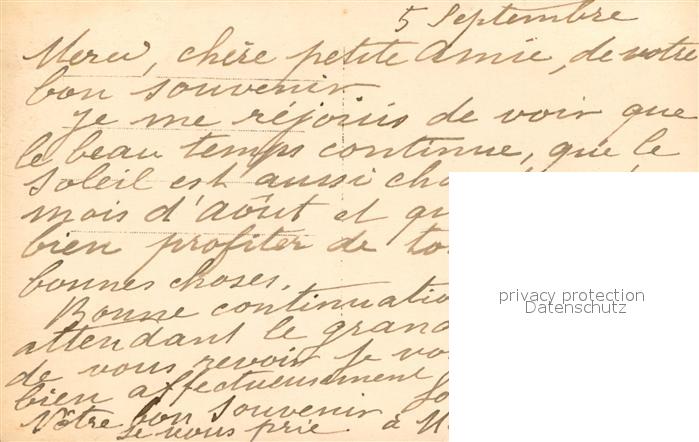 5 Septembre
Merci, chère petite Amie, de votre
bon souvenir
Je me réjouis de voir que
le beau temps continue, que le
soleil est aussi
mois d'Août et
bien profiter de
bonnes choses.
Bonne
attendant le
de vous revoir je
bien affectueusement
Votre bon souvenir à
je vous prie
privacy protection
Datenschutz